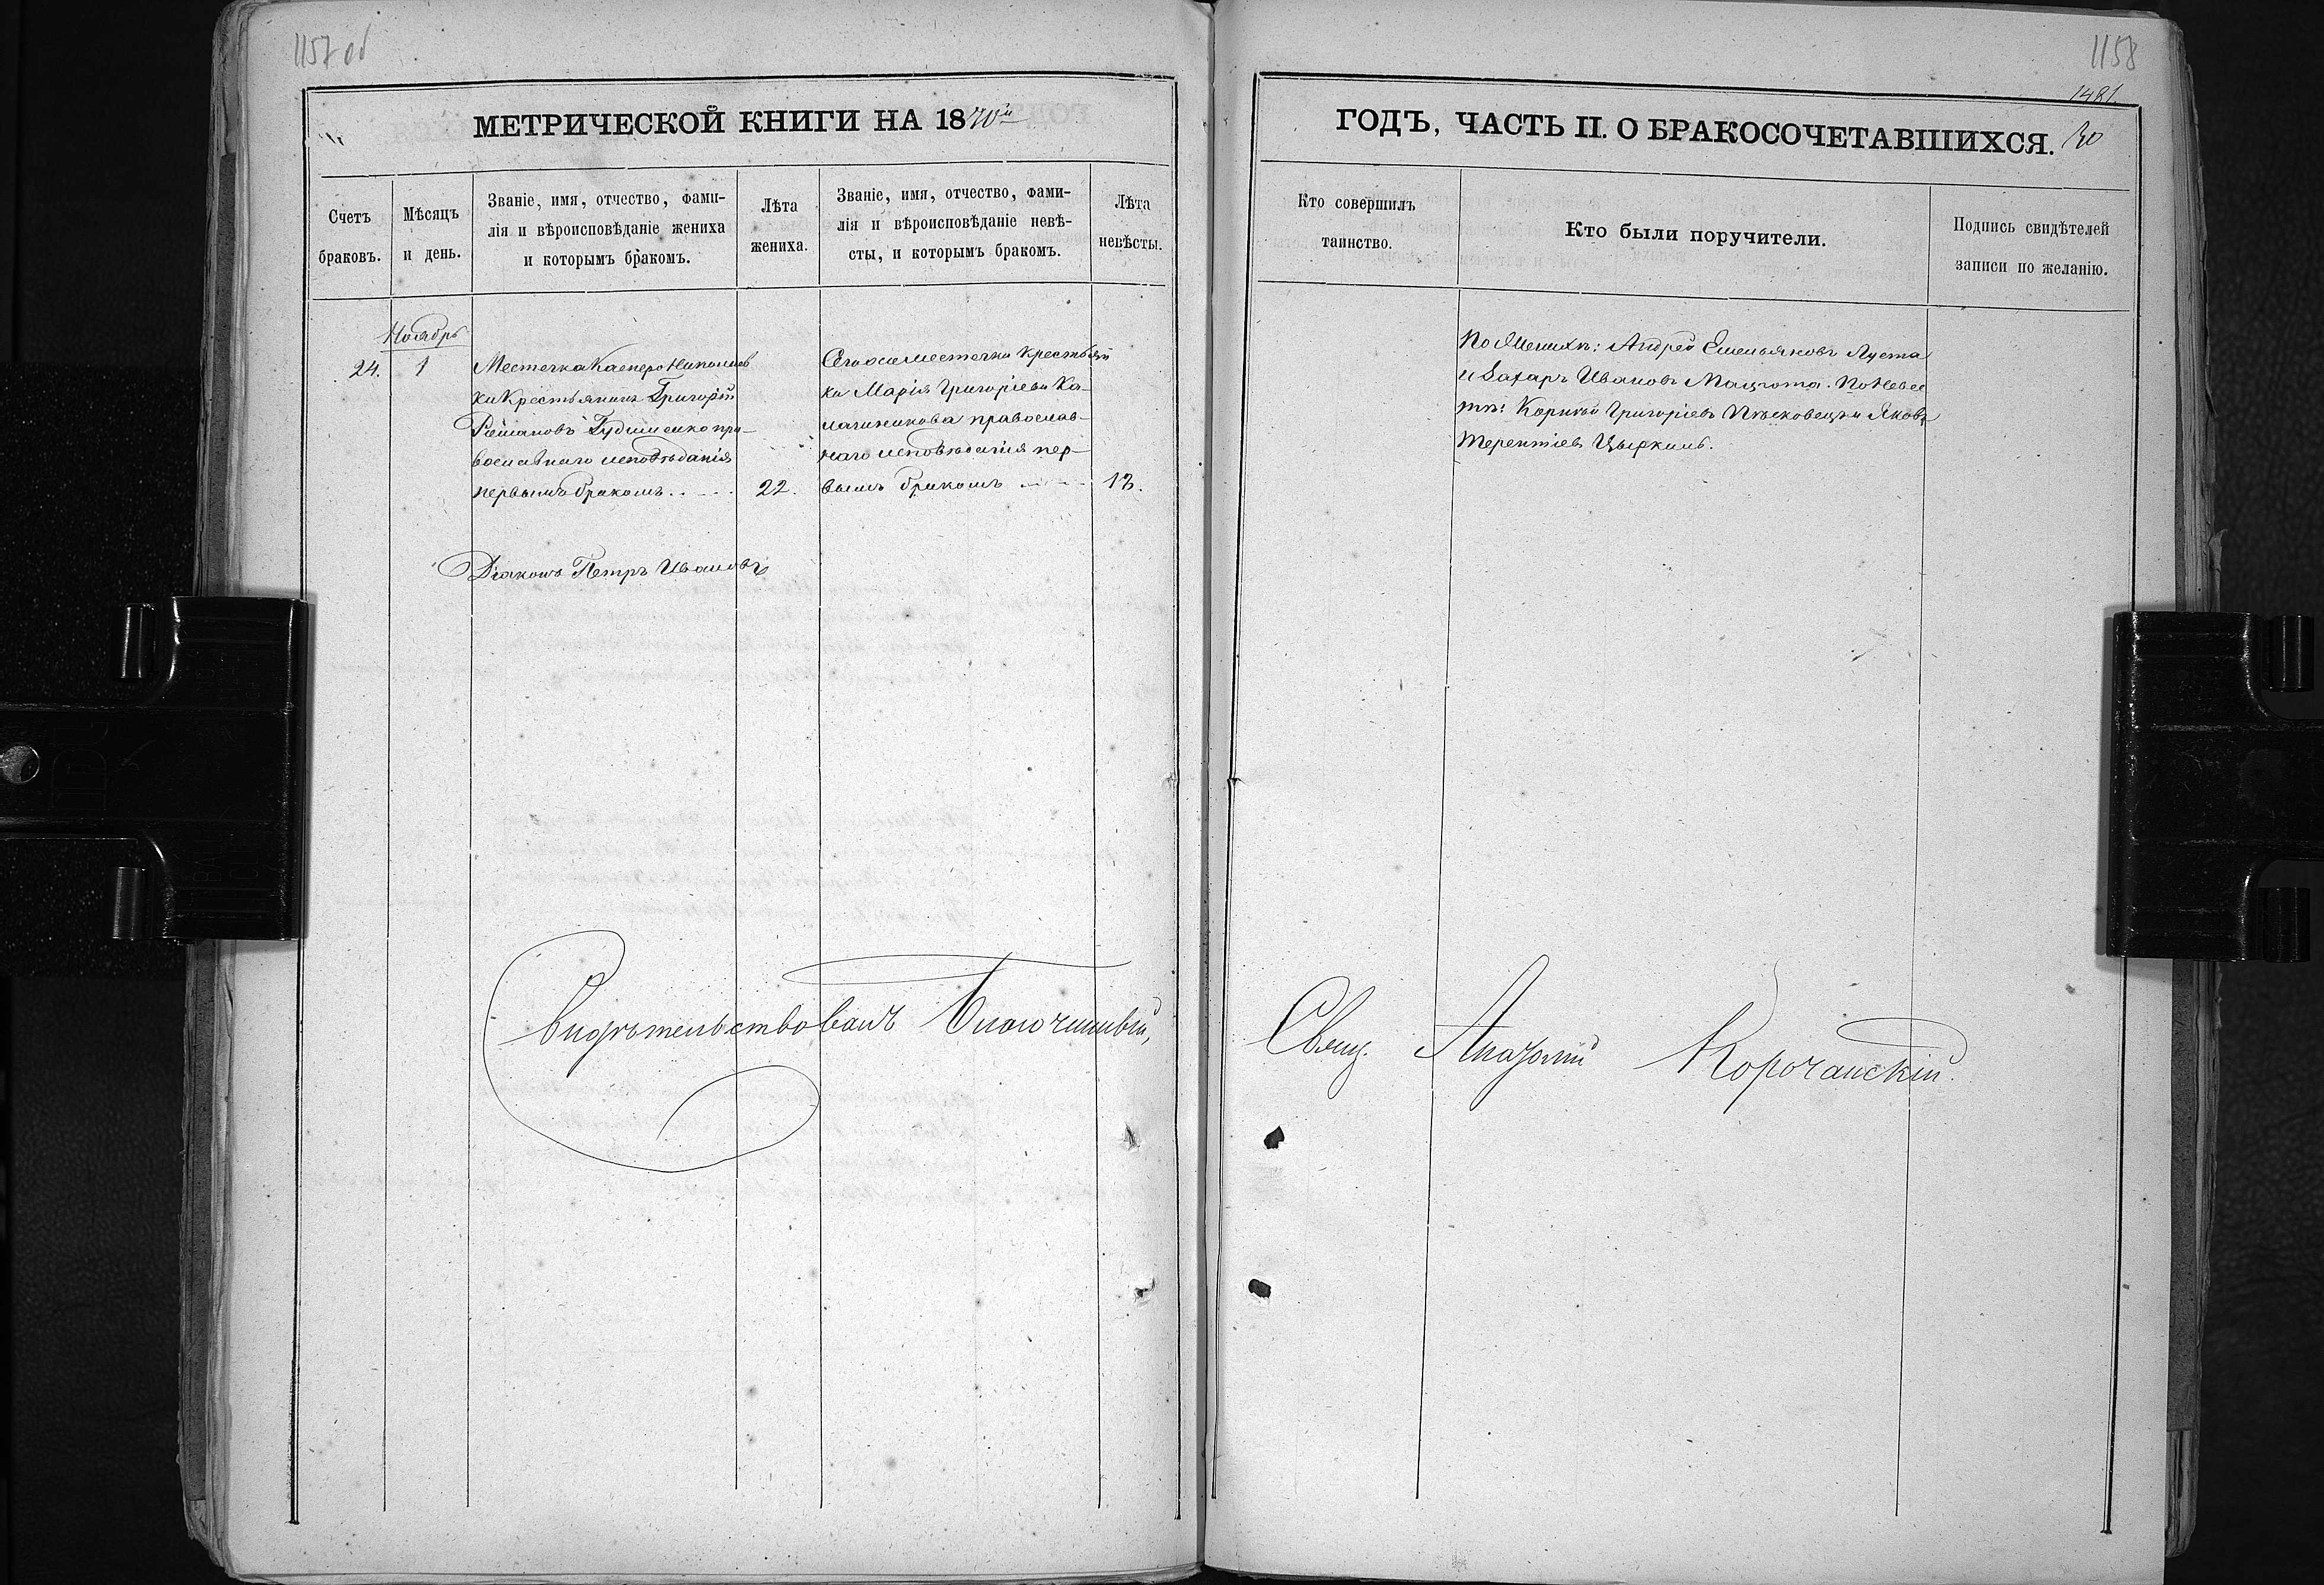 1157 об
МЕТРИЧЕСКОЙ КНИГИ НА 1870й
Счетъ браковъ.
Мѣсяцъ и день.
Званіе, имя, отчество, фами-
лія и вѣроисповѣданіе жениха
и которымъ бракомъ.
Лѣта
жениха.
Званіе, имя, отчество, фами-
лія и вѣроисповѣданіе невѣ-
сты, и которымъ бракомъ.
Лѣта
невѣсты.
Ноябрь
24. 1
Местечка Касперо Николаев
ки Крестьянинъ Григорій
Романовъ Гудименко пра-
вославнаго исповѣданія
первымъ бракомъ
22.
Сегоже местечка Крестьян
ка Марія Григоріева Ка
лашникова православ-
наго исповѣданія пер-
вымъ бракомъ
18.
Діаконъ Петръ Ивановъ
Свидѣтельствовалъ Благочинный,
1158
1481.
30
ГОДЪ, ЧАСТЬ II. О БРАКОСОЧЕТАВШИХСЯ.
Кто совершилъ
таинство.
Кто были поручители.
Подпись свидѣтелей
записи по желанію.
По Женихѣ: Андрей Емельяновъ Луста
и Захаръ Ивановъ. По Невес
тѣ: Корнѣй Григоріевъ и Яковъ
Терентіевъ
Свящ. Анатолій Корочанскій.